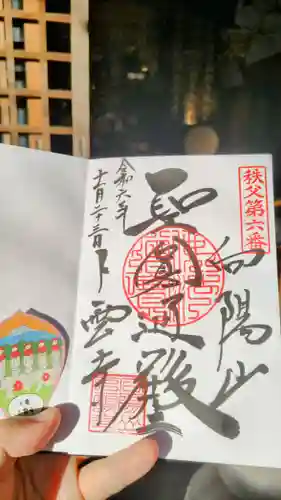 秩父第六番
向陽山
聖圓通殿
令和六年
十一月二十三日
卜雲寺